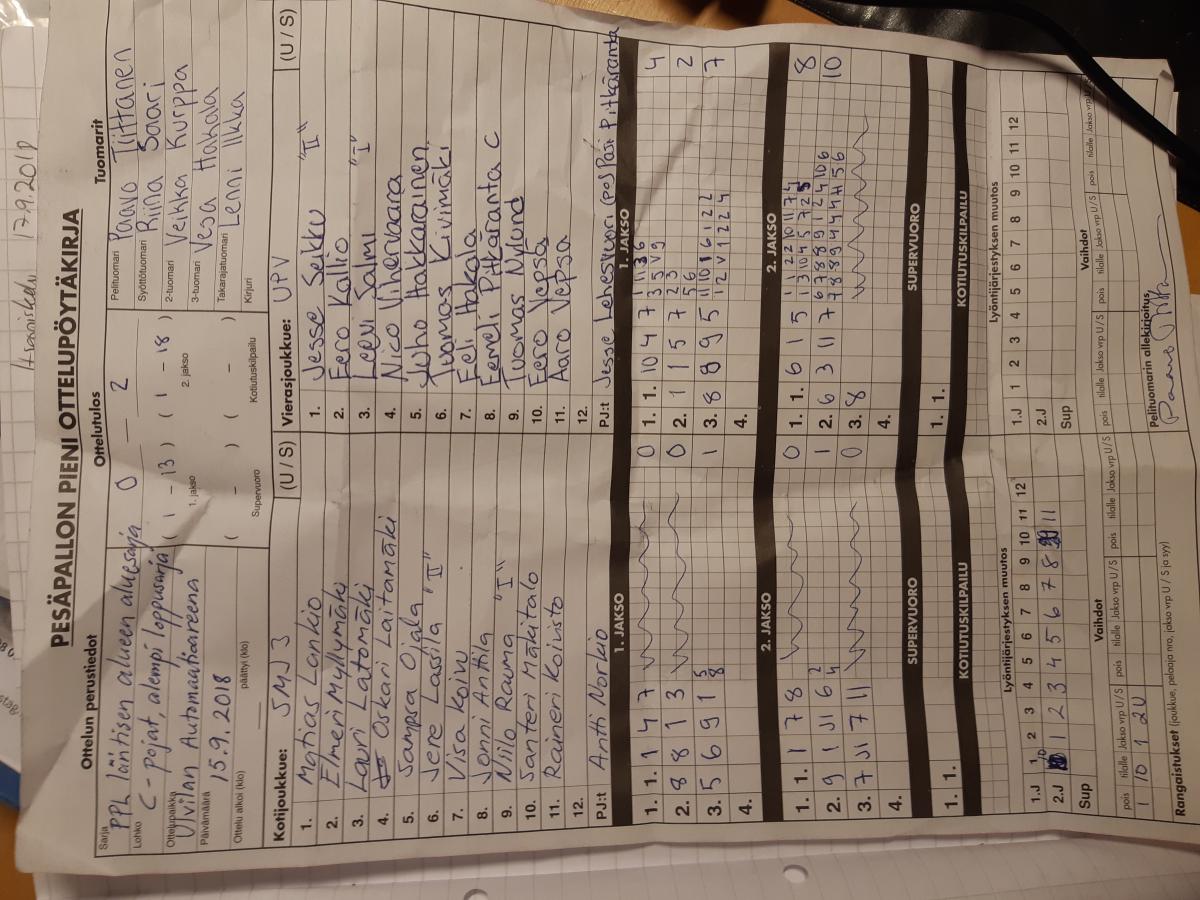 Aräniskelu 17.9.2018
PESÄPALLON PIENI OTTELUPÖYTÄKIRJA
Ottelun perustiedot
Ottelutulos
Tuomarit
Sarja PPL läntisen alueen aluesarja
Lohko C-pojat, alempi loppusarja
Ottelupaikka Ulvilan Automaatioareena
Päivämäärä 15.9.2018
Ottelu alkoi (klo) päättyi (klo)
0 — 2
( 1 - 13 ) ( 1 - 18 )
1. jakso 2. jakso
( - ) ( - )
Supervuoro Kotiutuskilpailu
Pelituomari Paavo Tiittanen
Syöttötuomari Riina Saari
2-tuomari Veikka Kurppa
3-tuomari Vesa Hakala
Takarajatuomari Lenni Ilkka
Kirjuri
Kotijoukkue: SMJ 3 (U / S)
1. Matias Lankio
2. Elmeri Myllymäki
3. Lauri Latomäki
4. Oskari Laitamäki
5. Sampsa Ojala
6. Jere Lassila "II"
7. Visa Koivu
8. Jonni Anttila
9. Niilo Rauma "I"
10. Santeri Mäkitalo
11. Raineri Koivisto
12.
PJ:t Antti Norkio
Vierasjoukkue: UPV (U / S)
1. Jesse Seikku "II"
2. Eero Kallio
3. Leevi Salmi "I"
4. Nico Vihervaara
5. Juho Hakkarainen
6. Tuomas Kivimäki
7. Eeli Hakala
8. Eemeli Pitkäranta C
9. Tuomas Nylund
10. Eero Vepsä
11. Aaro Vepsä
12.
PJ:t Jesse Lehesvuori (po) Pasi Pitkäranta
1. JAKSO
1. 1. 1 4 7 0
2. 8 8 1 3 0
3. 5 6 9 1 5 8 1
4.
2. JAKSO
1. 1. 1 7 8 0
2. 9 1 J1 6 2 4 1
3. 7 J1 7 11 0
4.
SUPERVUORO
1. 1.
KOTIUTUSKILPAILU
1. JAKSO
1. 1. 10 4 7 4
2. 1 1 5 7 2
3. 8 8 9 5 7
4.
2. JAKSO
1. 1. 6 1 5 8
2. 6 3 11 7 10
3. 8
4.
SUPERVUORO
1. 1.
KOTIUTUSKILPAILU
Lyöntijärjestyksen muutos
1.J 1 2 3 4 5 6 7 8 9 10 11 12
2.J 10 1 2 3 4 5 6 7 8 11
Sup
Vaihdot
pois tilalle Jakso vrp U/S pois tilalle Jakso vrp U/S pois tilalle Jakso vrp U/S
1 10 1 2U
Rangaistukset (joukkue, pelaaja nro, jakso vrp U / S ja syy)
Lyöntijärjestyksen muutos
1.J 1 2 3 4 5 6 7 8 9 10 11 12
2.J
Sup
Vaihdot
pois tilalle Jakso vrp U/S pois tilalle Jakso vrp U/S pois tilalle Jakso vrp U/S
Pelituomarin allekirjoitus